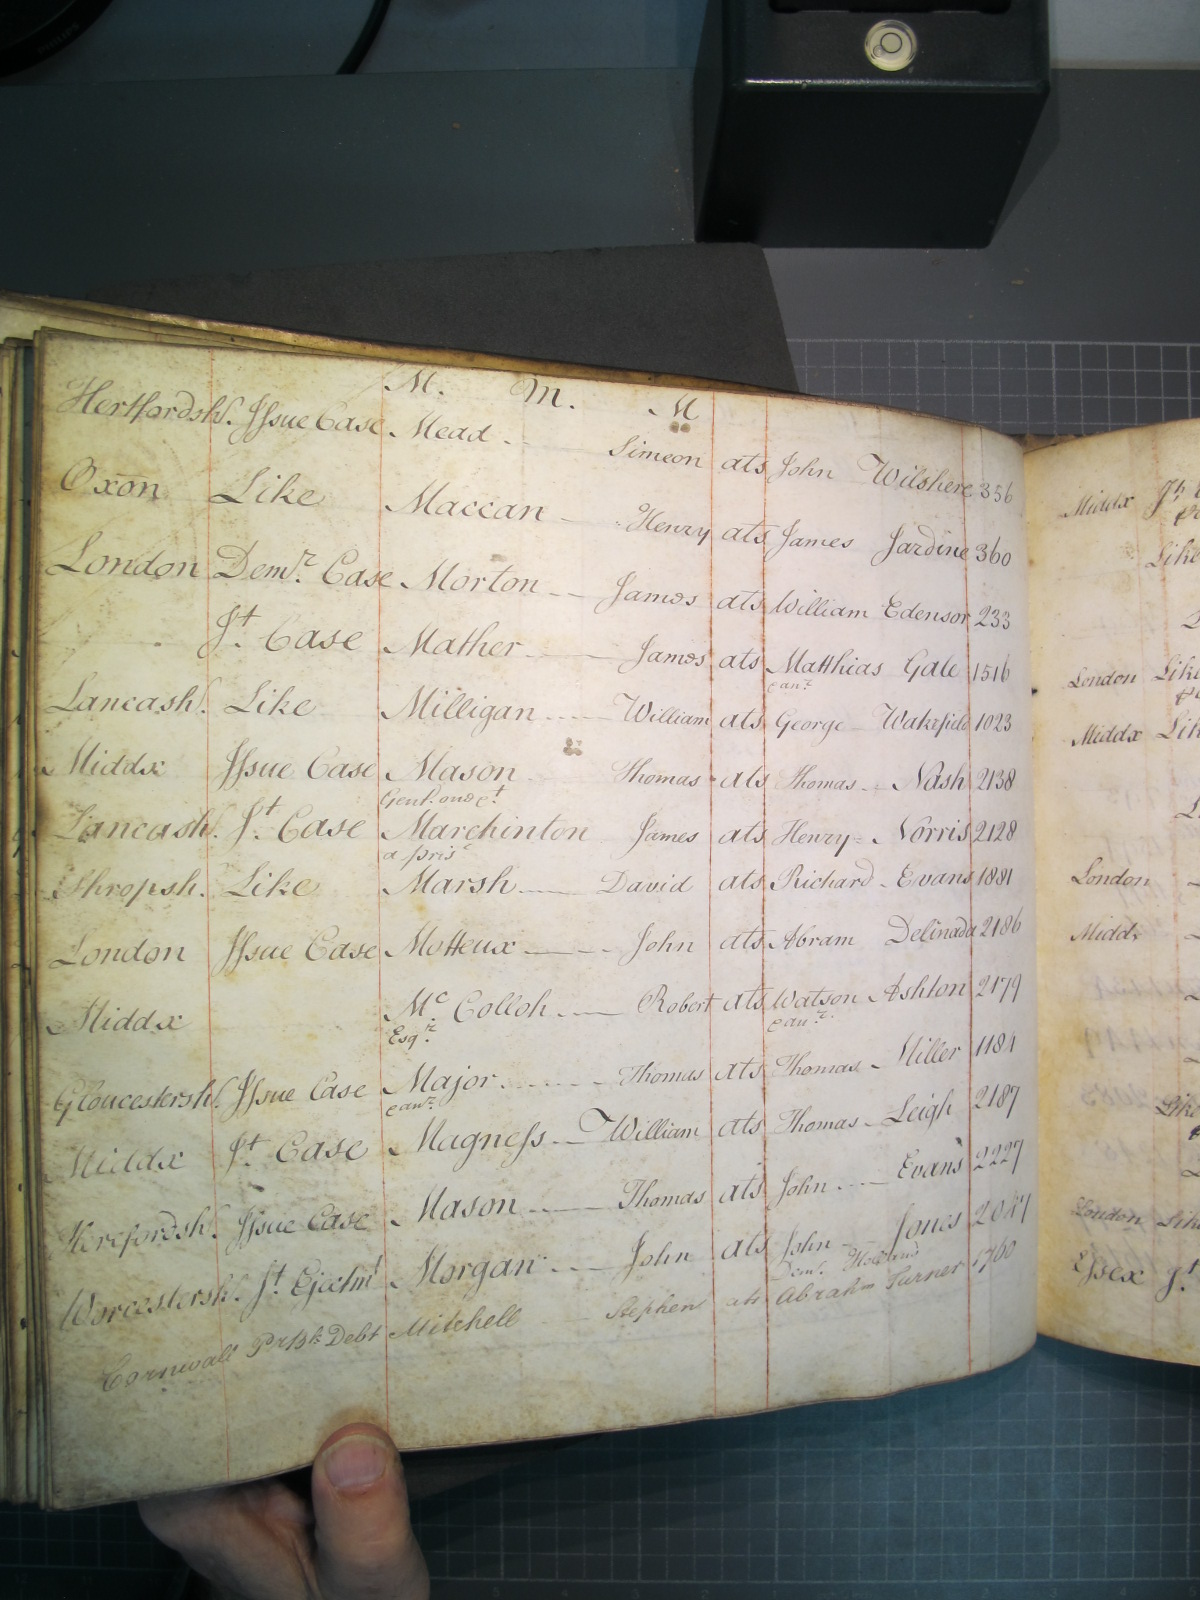 M. M. M
Hertfordsh. Issue Case Mead Simeon ats John Wilshere 356
Oxon Like Maccan Henry ats James Jardine 360
London Demr. Case Morton James ats William Edensor 233
Jt. Case Mather James ats Matthias Gale 1516
eanr.
Lancash. Like Milligan William ats George Wakefield 1023
Middx Issue Case Mason Thomas ats Thomas Nash 2138
Gent. one et
Lancash. Jt. Case Marchinton James ats Henry Norris 2128
a prisr
Shropsh. Like Marsh David ats Richard Evans 1881
London Issue Case Motteux John ats Abram Delinada 2186
Middx Mc. Colloh Robert ats Watson Ashton 2179
Esqr. eanr.
Gloucestersh. Issue Case Major Thomas ats Thomas Miller 1184
eanr.
Middx Jt. Case Magness William ats Thomas Leigh 2187
Herefordsh. Issue Case Mason Thomas ats John Evans 2227
Worcestersh. Jt. Ejectmt Morgan John ats John Jones 2047
Cornwall Debt Mitchell Stephen ats Abraham Turner 1760
Middx
Like
London
Middx
London
Middx
London
Essex Jt